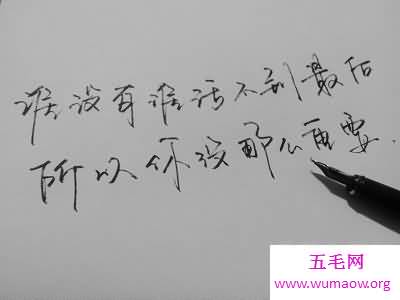 谁没有谁活不到最后
所以你没那么重要.
五毛网
www.wumaow.org